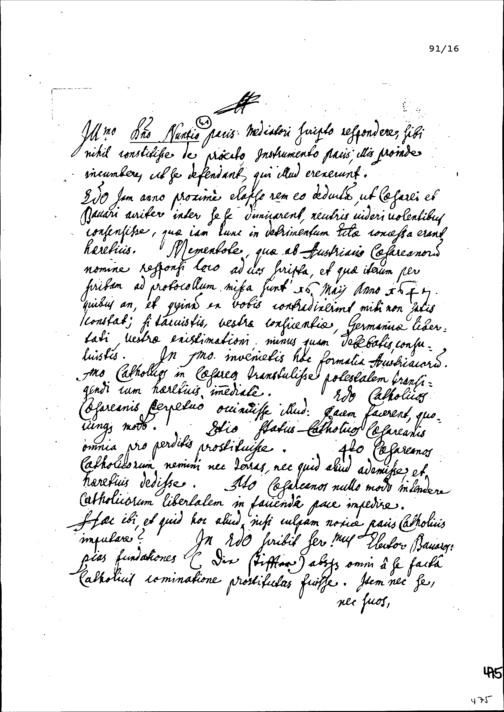 91/16
41
Illmo Dno Nuntio pacis Mediatori scripto respondere, sibi
nihil constitisse de praefato Instrumento pacis illis proinde
incumbere, ut se defendant, qui illud erexerunt.
2do Jam anno proxime elapso rem eo deductam, ut Caesarei et
Bavari acriter inter se se dimicarent, neutris videri volentibus
consensisse, quae iam tunc in detrimentum concessa erant
haereticis. Mementote, quae ab Austriacis Caesareanorum
nomine responsi loco ad vos scripta, et quae iterum per
scribam ad protocollum missa sunt 16 Maij Anno 1647.
quibus an, et quid in vobis contradixerint mihi non satis
constat; si tacuistis, vestrae conscientiae, Germaniae liber-
tati, vestrae existimationi, minus quam debebatis consu-
luistis. In 1mo. invenietis haec formalia Austriacorum.
1mo Catholicos in Caesarea transtulisse potestatem transi-
gendi cum haereticis immediate. 2do Catholicos
Caesareanis perpetuo occinuisse illud: pacem facerent, quo-
cunque modo. 3tio status Catholicos Caesareanis
omnia pro perditis prostituisse. 4to Caesareanos
Catholicorum nemini nec terras, nec quid aliud ademisse et
haereticis dedisse. 5to Caesareanos nullo modo intendere
Catholicorum libertatem in facienda pace impedire.
Haec ibi, et quid hoc aliud, nisi culpam noxiae pacis Catholicis
imputare? In 2do scribit Ser.mus Elector Bavarus
pias fundationes absque omni a se facta
Catholicis comminatione prostitutas fuisse. Item nec se,
nec suos,
475
475